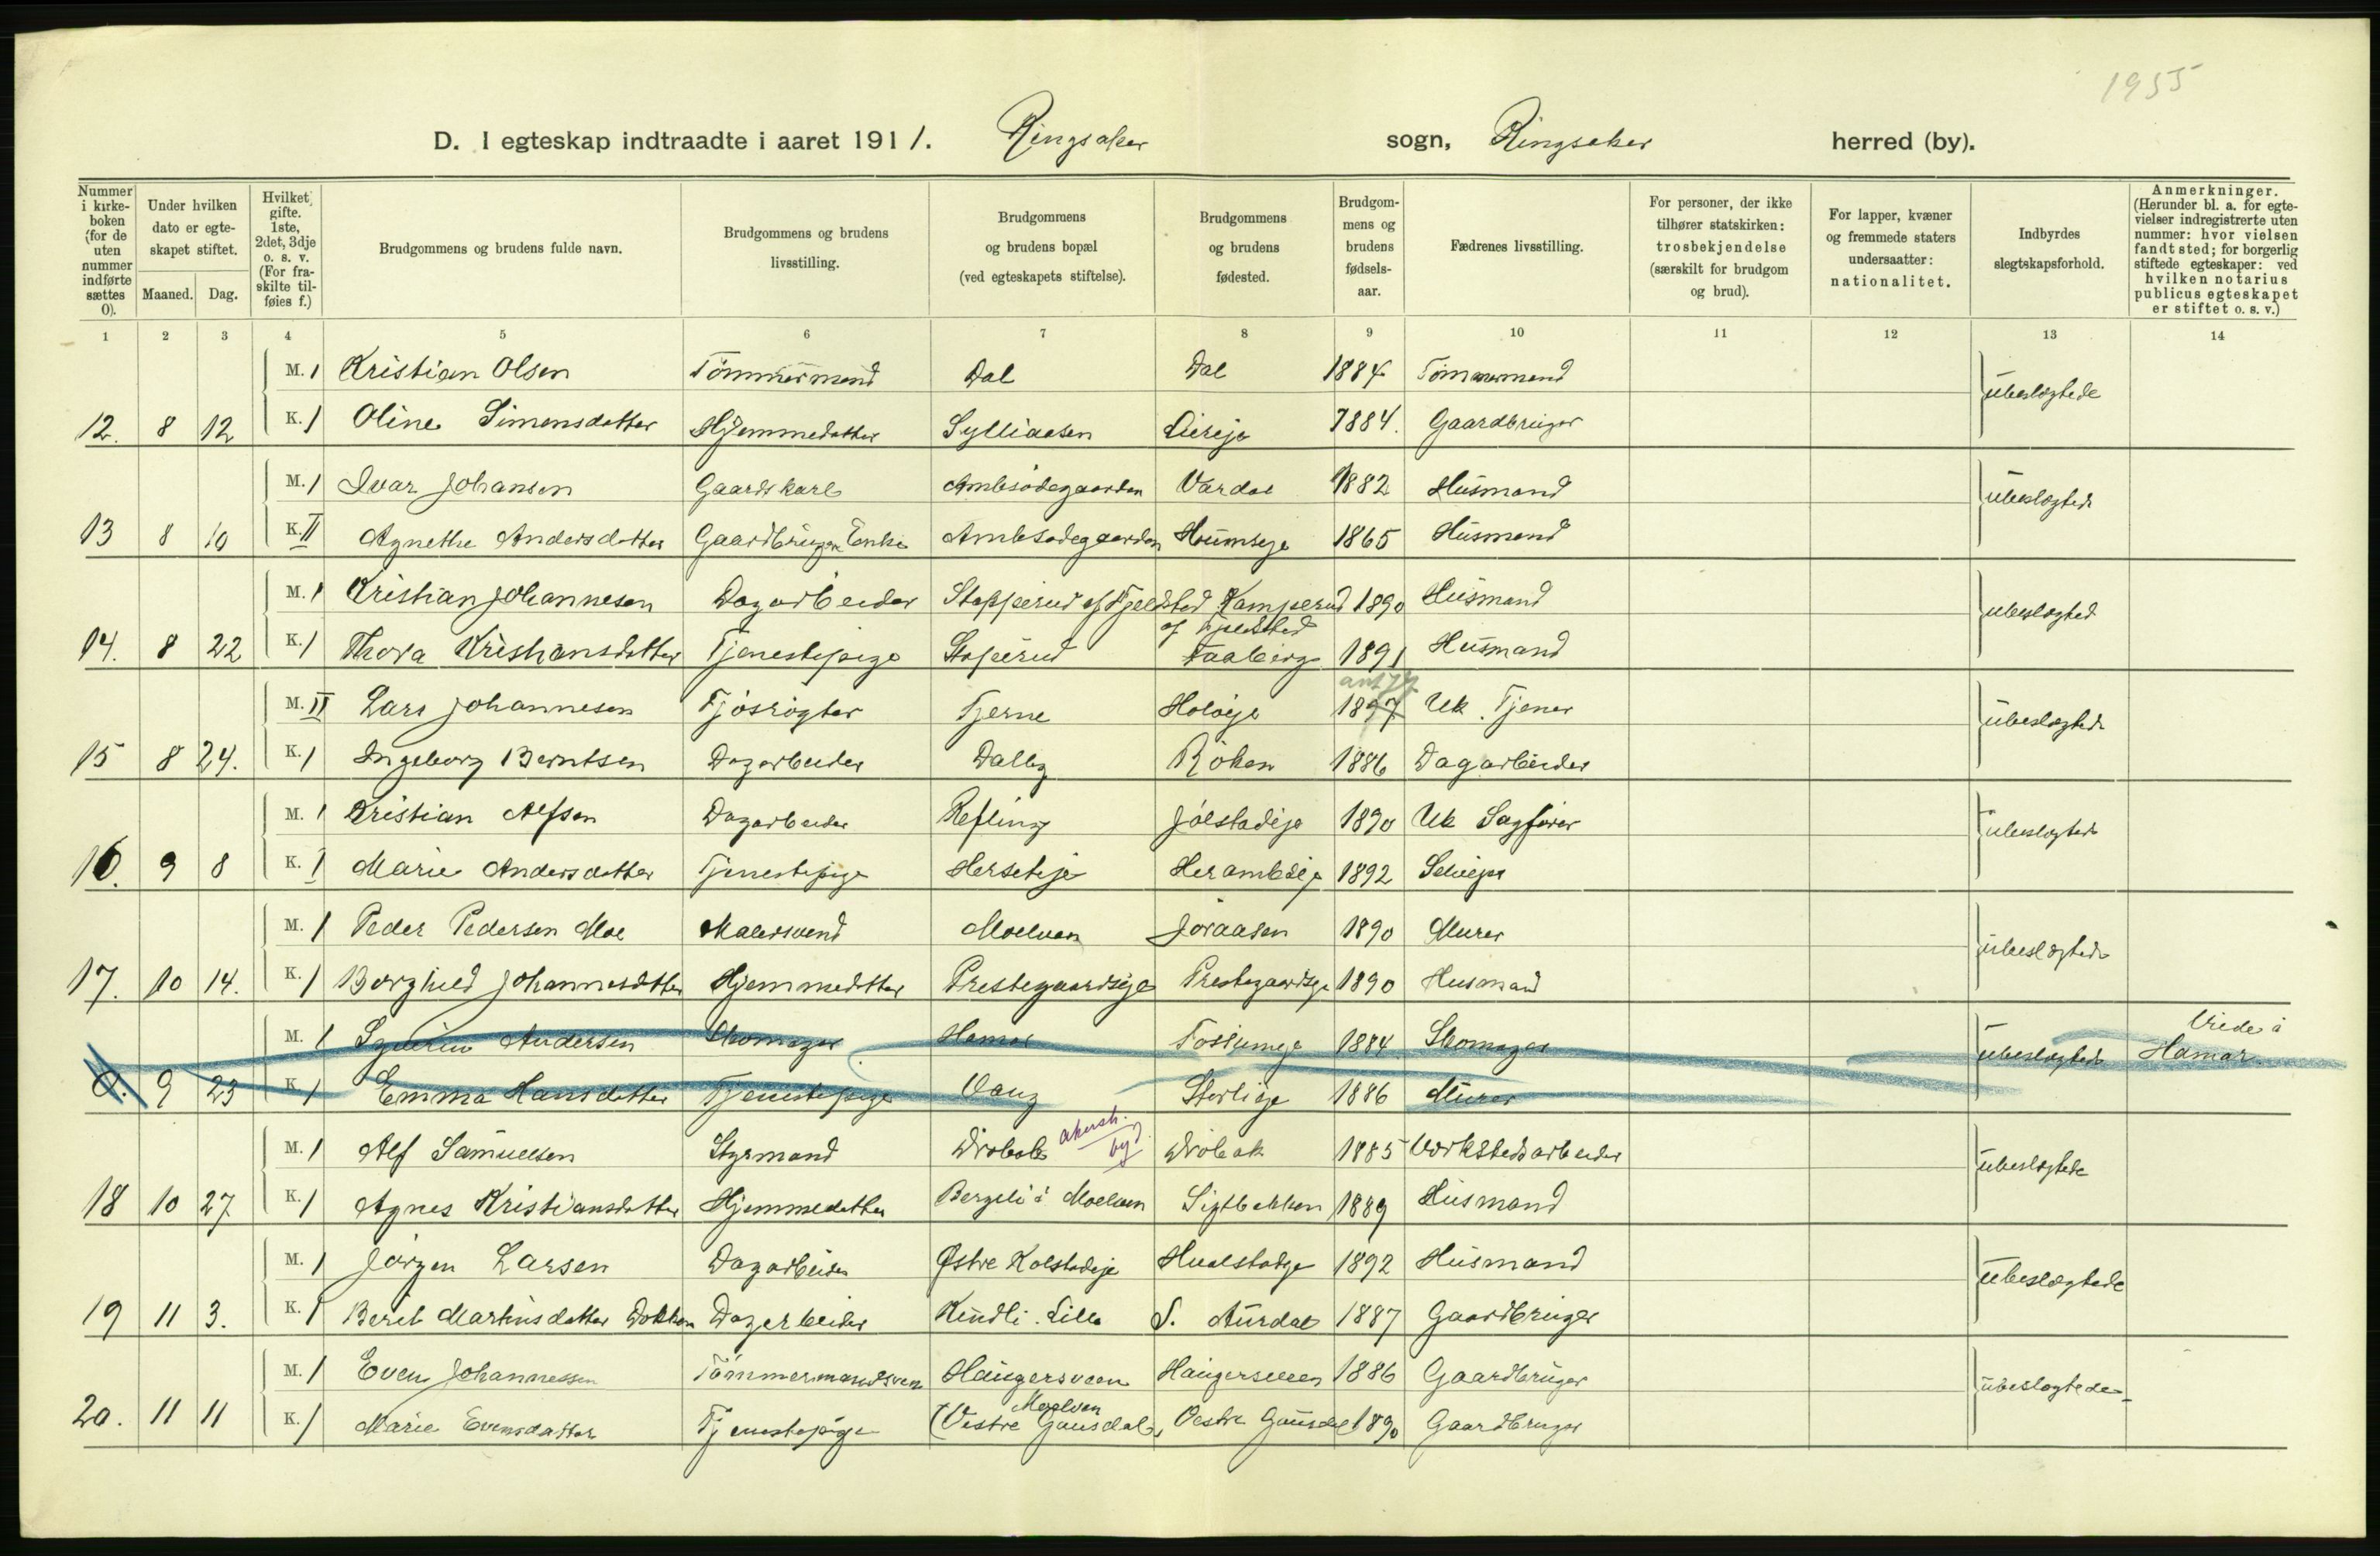 1955
D. I egteskap indtraadte i aaret 1911. Ringsaker sogn, Ringsaker herred (by).
Nummer i kirkeboken (for de uten nummer indførte sættes 0).
Under hvilken dato er egteskapet stiftet.
Maaned. Dag.
Hvilket gifte. 1ste, 2det, 3dje o. s. v. (For fraskilte tilføies f.)
Brudgommens og brudens fulde navn.
Brudgommens og brudens livsstilling.
Brudgommens og brudens bopæl (ved egteskapets stiftelse).
Brudgommens og brudens fødested.
Brudgommens og brudens fødselsaar.
Fædrenes livsstilling.
For personer, der ikke tilhører statskirken: trosbekjendelse (særskilt for brudgom og brud).
For lapper, kvæner og fremmede staters undersaatter: nationalitet.
Indbyrdes slegtskapsforhold.
Anmerkninger. (Herunder bl. a. for egtevielser indregistrerte uten nummer: hvor vielsen fandt sted; for borgerlig stiftede egteskaper: ved hvilken notarius publicus egteskapet er stiftet o. s. v.)
1 2 3 4 5 6 7 8 9 10 11 12 13 14
M. 1 Kristian Olsen Tömmermand Dal Dal 1884 Tömmermand ubeslægtede
12. 8 12 K. 1 Oline Simensdatter Hjemmedatter Sylliaasen 1884. Gaardbruger
M. 1 Ivar Johansen Gaardskarl Ambsödegaarden Vardal 1882 Husmand ubeslægtede
13 8 10 K. II Agnethe Andersdatter Gaardbruger Enke Ambsödegaarden 1865 Husmand
M. 1 Kristian Johannesen Dagarbeider Stopperud af Fjeldstad Kamperud 1890 Husmand ubeslægted
af Fjeldstad
14. 8 22 K. 1 Thora Kristiansdatter Tjenestepige Stoperud Faaberg 1891 Husmand
M. II Lars Johannesen Fjösrögter Tjerne 1897 Uk. Tjener ubeslægtede
15 8 24. K. 1 Ingeborg Berntsen Dagarbeider Dalby Röken 1886 Dagarbeider
M. 1 Kristian Alfsen Dagarbeider Refling Jölstadeje 1890 Uk Sagförer ubeslægtede
16. 9 8 K. 1 Marie Andersdatter Tjenestepige Herseteje 1892 Selveier
M. 1 Peder Pedersen Moe Malersvend Moelven Joraasen 1890 Murer ubeslægtede
17. 10 14. K. 1 Borghild Johannesdatter Hjemmedatter Prestegaardseje Prestegaardseje 1890 Husmand
M. 1 Andersen Skomager Hamar 1884 Skomager ubeslægtede Viede i
Hamar.
0. 9 23 K. 1 Emma Hansdatter Tjenestepige Vang Storlieje 1886 Murer
M. 1 Alf Samuelsen Styrmand Dröbak akersh. by Dröbak 1885 Verkstedsarbeider ubeslægtede
18 10 27 K. 1 Agnes Kristiansdatter Hjemmedatter Bergli i Moelven Sigtbakken 1889 Husmand
M. 1 Jörgen Larsen Dagarbeider Østre Kolstadeje 1892 Husmand ubeslægtede
19 11 3. K. 1 Berit Martinsdatter Dokken Dagarbeider Kindli Lille S. Aurdal 1887 Gaardbruger
M. 1 Even Johannessen Tömmermandsvend Haugersveen Haugersveen 1886 Gaardbruger ubeslægtede
Moelven
20. 11 11 K. 1 Marie Evensdatter Tjenestepige (Vestre Gausdal, Vestre Gausdal 1890 Gaardbruger